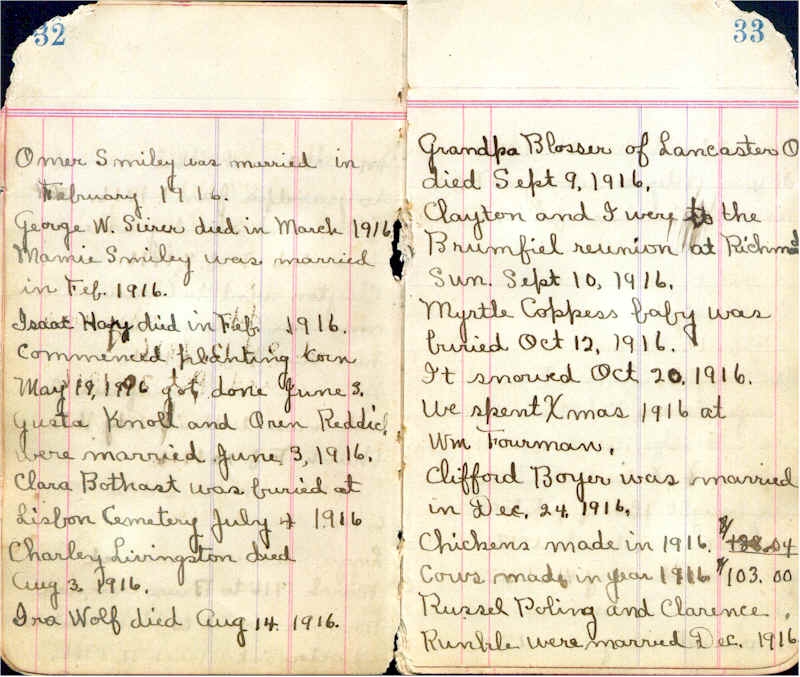 32
Omer Smiley was married in
February 1916.
George W. Surer died in March 1916
Mamie Smiley was married
in Feb. 1916.
Isaac Hapy died in Feb. 1916.
Commenced planting Corn
May 19, 1916 got done June 3.
Gusta Knoll and Oren Reddick
were married June 3, 1916.
Clara Bothast was buried at
Lisbon Cemetery July 4 1916
Charley Livingston died
Aug 3, 1916.
Ira Wolf died Aug 14. 1916.
33
Grandpa Blosser of Lancaster O
died Sept 9, 1916.
Clayton and I were to the
Brumfiel reunion at Richmond
Sun. Sept 10, 1916.
Myrtle Coppess baby was
buried Oct 12, 1916.
It snowed Oct 20. 1916.
We spent Xmas 1916 at
Wm Fourman.
Clifford Boyer was married
in Dec. 24, 1916.
Chickens made in 1916. $ .04
Cows made in year 1916 $103.00
Russel Poling and Clarence
Runkle were married Dec. 1916